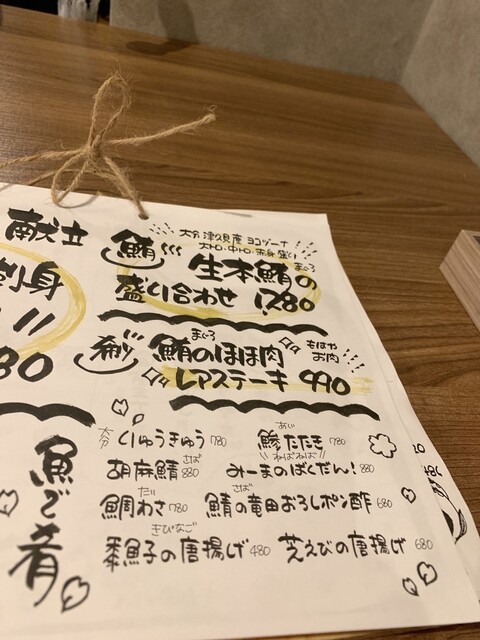 献立
刺身
鮪
大分 津久見産 ヨコヅーナ
大トロ・中トロ・赤身 盛り
生本鮪の
まぐろ
盛り合わせ 1,780
まぐろ
鮪のほほ肉
もはや
お肉
レアステーキ 990
魚で肴
大分 りゅうきゅう 780
あじ
鯵たたき 780
さば
胡麻鯖 880
ねばねば!!
みーまのばくだん! 880
だい
鯛わさ 780
さば
鯖の竜田おろしポン酢 680
きびなご
黍魚子の唐揚げ 480
芝えびの唐揚げ 680